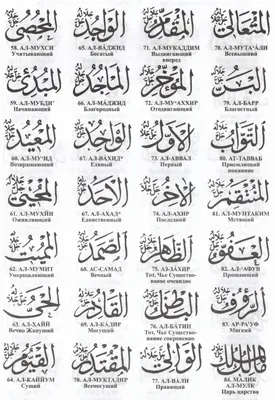 المحصي
58. АЛ-МУХСИ
Учитывающий
الواجد
65. АЛ-ВАДЖИД
Богатый
المقدم
71. АЛ-МУКАДДИМ
Выдвигающий
вперед
المتعالي
78. АЛ-МУТА'АЛИ
Всевышний
المبدئ
59. АЛ-МУБДИ'
Начинающий
الماجد
66. АЛ-МАДЖИД
Благородный
المؤخر
72. АЛ-МУ'АХХИР
Отодвигающий
البر
79. АЛ-БАРР
Благостный
المعيد
60. АЛ-МУ'ИД
Возвращающий
الواحد
67. АЛ-ВАХИД*
Единый
الأول
73. АЛ-АВВАЛ
Первый
التواب
80. АТ-ТАВВАБ
Приемлющий
покаяние
المحيي
61. АЛ-МУХЙИ
Оживляющий
الأحد
67. АЛ-АХАД*
Единственный
الآخر
74. АЛ-АХИР
Последний
المنتقم
81. АЛ-МУНТАКИМ
Мстящий
المميت
62. АЛ-МУМИТ
Умерщвляющий
الصمد
68. АС-САМАД
Вечный
الظاهر
75. АЗ-ЗАХИР
Тот, Чье Существо-
вание очевидно
العفو
82. АЛ-'АФУВ
Прощающий
الحي
63. АЛ-ХАЙЙ
Вечно Живущий
القادر
69. АЛ-КАДИР
Могущий
الباطن
76. АЛ-БАТИН
Тот, Чье Существо-
вание сокровенно
الرؤوف
83. АР-РА'УФ
Мягкий
القيوم
64. АЛ-КАЙЙУМ
Сущий
المقتدر
70. АЛ-МУКТАДИР
Всемогущий
الوالي
77. АЛ-ВАЛИ
Правящий
مالك الملك
84. МАЛИК
АЛ-МУЛК
Царь царства